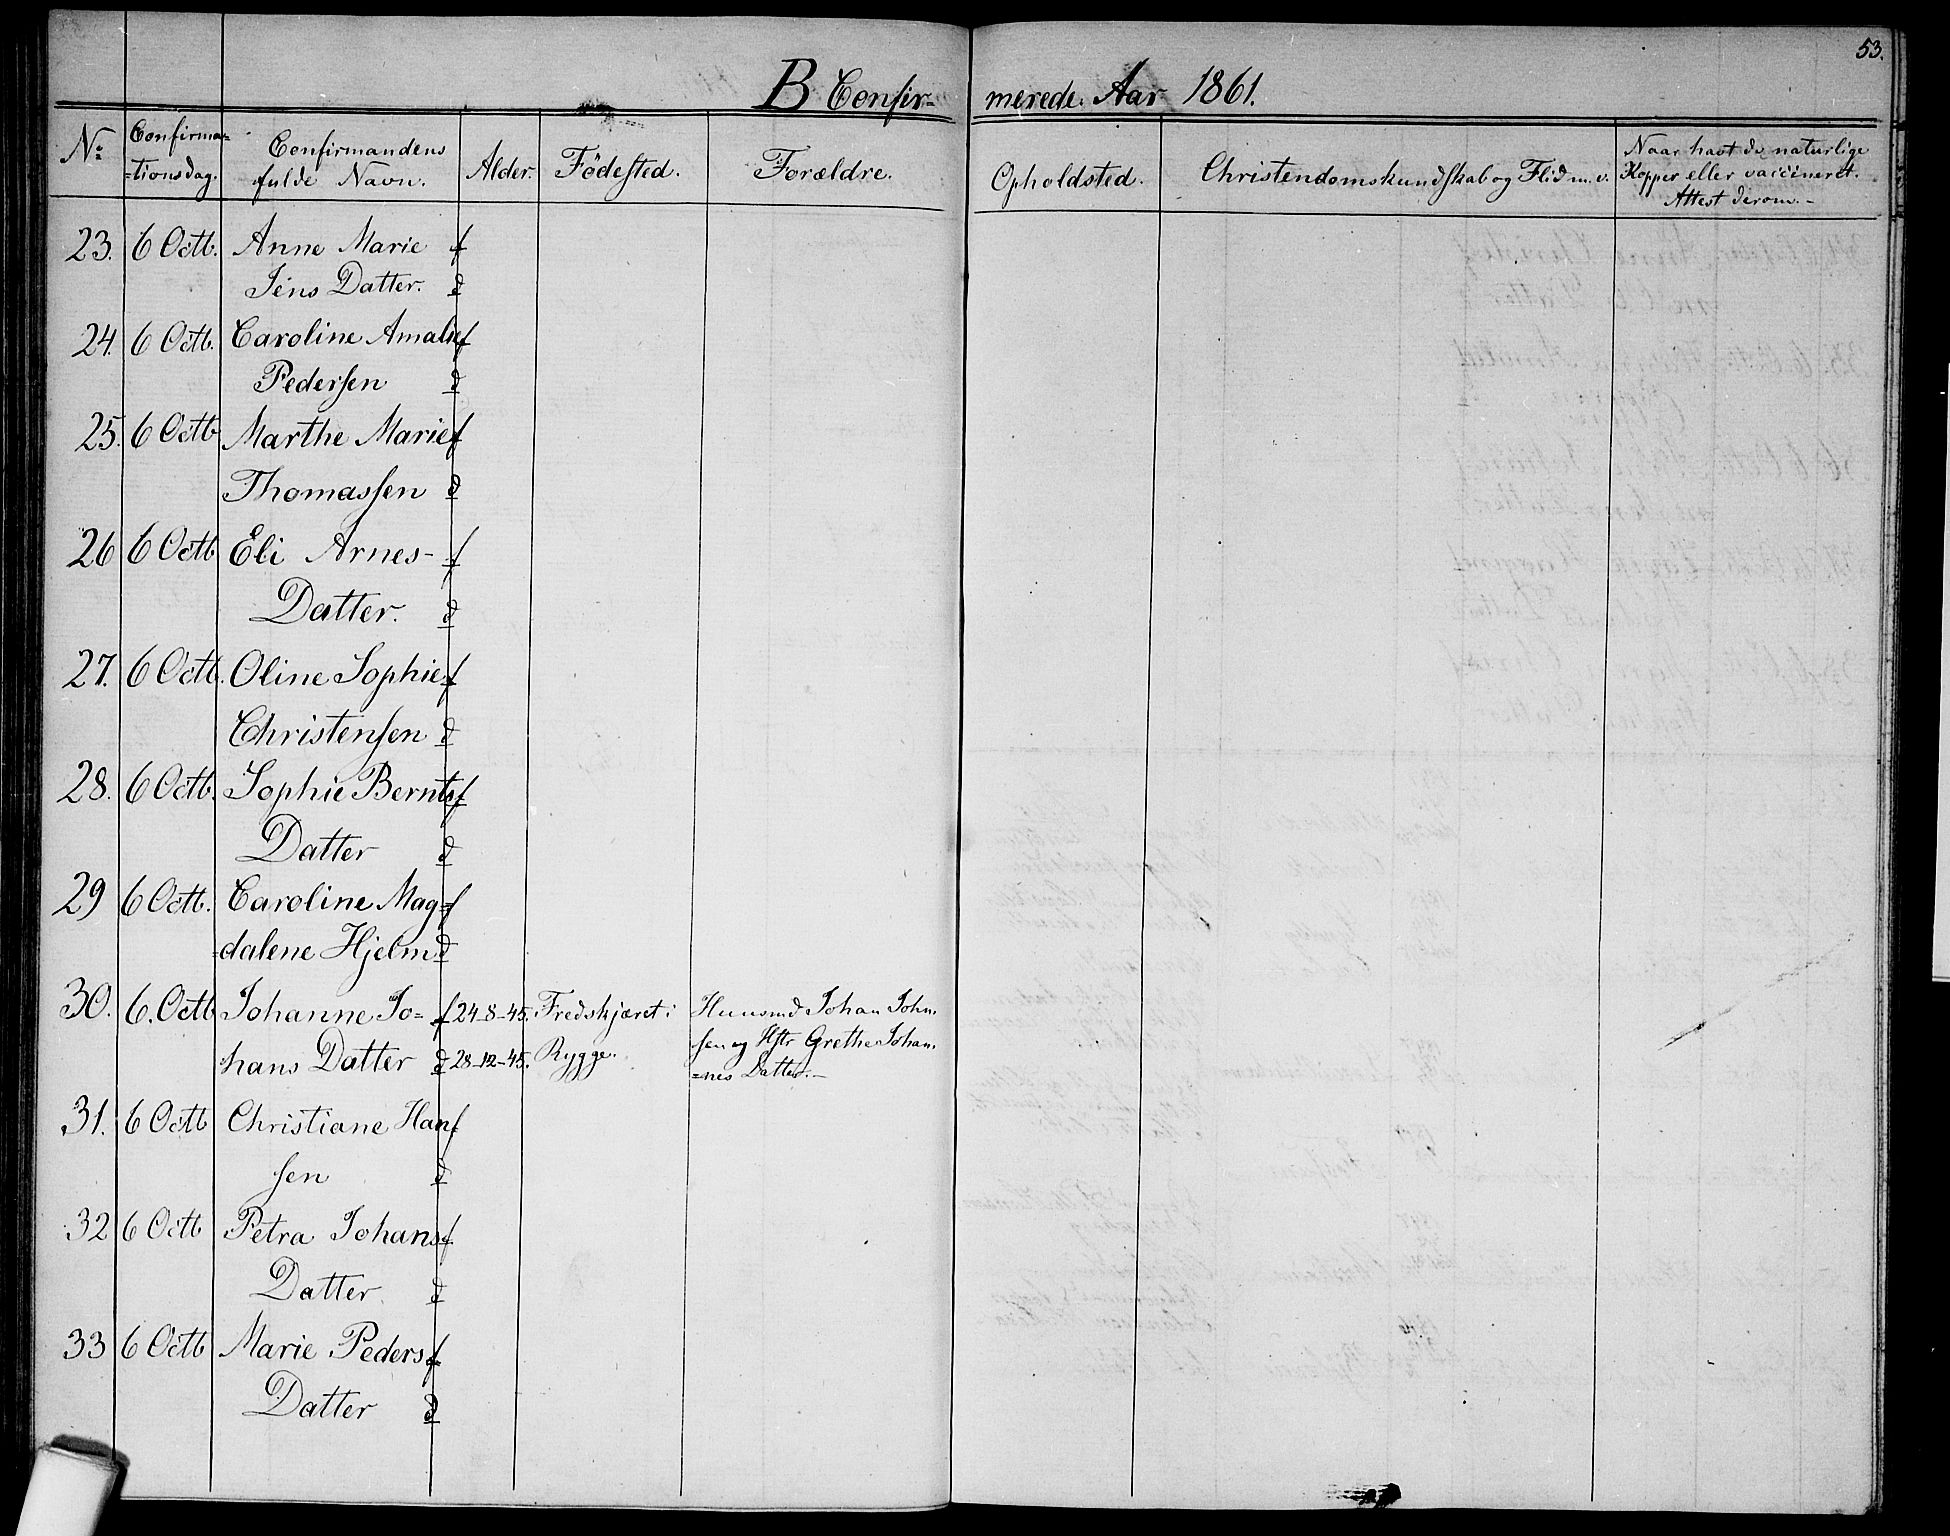 53.
B Confir- merede Aar 1861.
No Confirma=tionsdag. Confirmandens fulde Navn. Alder. Födested. Forældre. Opholdsted. Christendomskundskab og Flid m. v. Naar havt de naturlige Kopper eller vaccineret. Attest derom.-
23. 6 Octb. Anne Marie f
Jens Datter. d
24. 6 Octb. Caroline Amalie f
Pedersen d
25. 6 Octb Marthe Marie f
Thomassen d
26 6 Octb Eli Arnes- f
Datter. d
27. 6 Octb. Oline Sophie f
Christensen d
28. 6 Octb. Sophie Bernts f
Datter d
29 6 Octb. Caroline Mag= f
=dalene Hjelm d
30. 6. Octb Johanne Jo= f 24-8-45. Fredskjæret i Huusmd Johan John.
hans Datter d 28-12-45. Rygge. sen og Hstr Grethe Johan.
=nes Datter.-
31. 6 Octb Christiane Han f
sen d
32 6 Octb Petra Johans f
Datter d
33 6 Octb Marie Peders f
Datter d